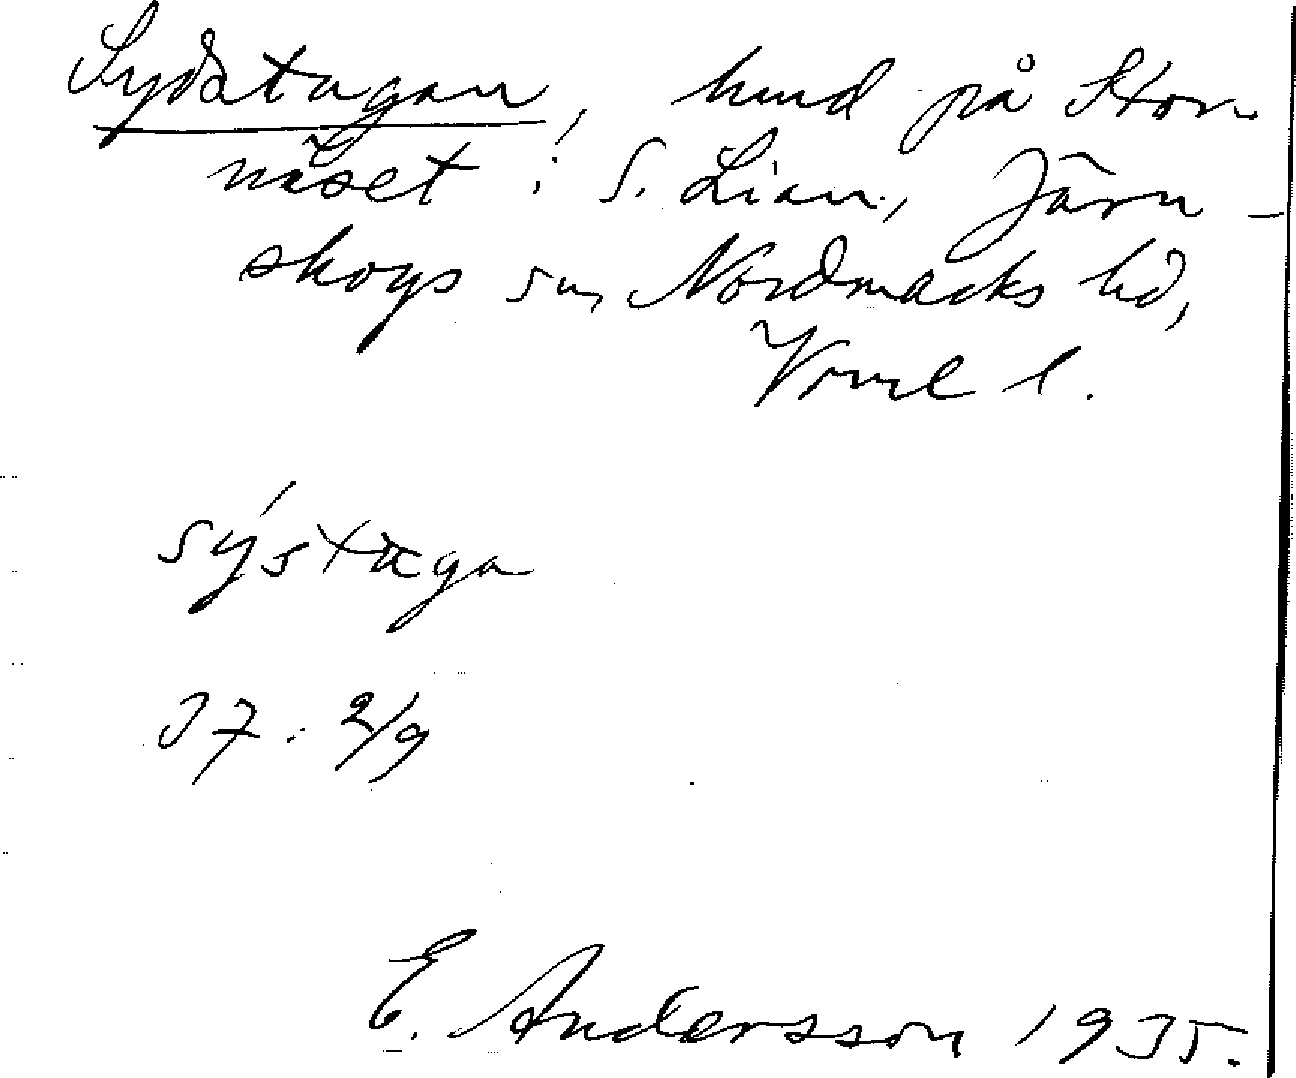 Sydstugan, hund på Stor-
näset i S. Lian, Järn-
skogs sn, Nordmarks hd,
Vrml l.
sýstuga
37. 2/9
E. Andersson 1935.